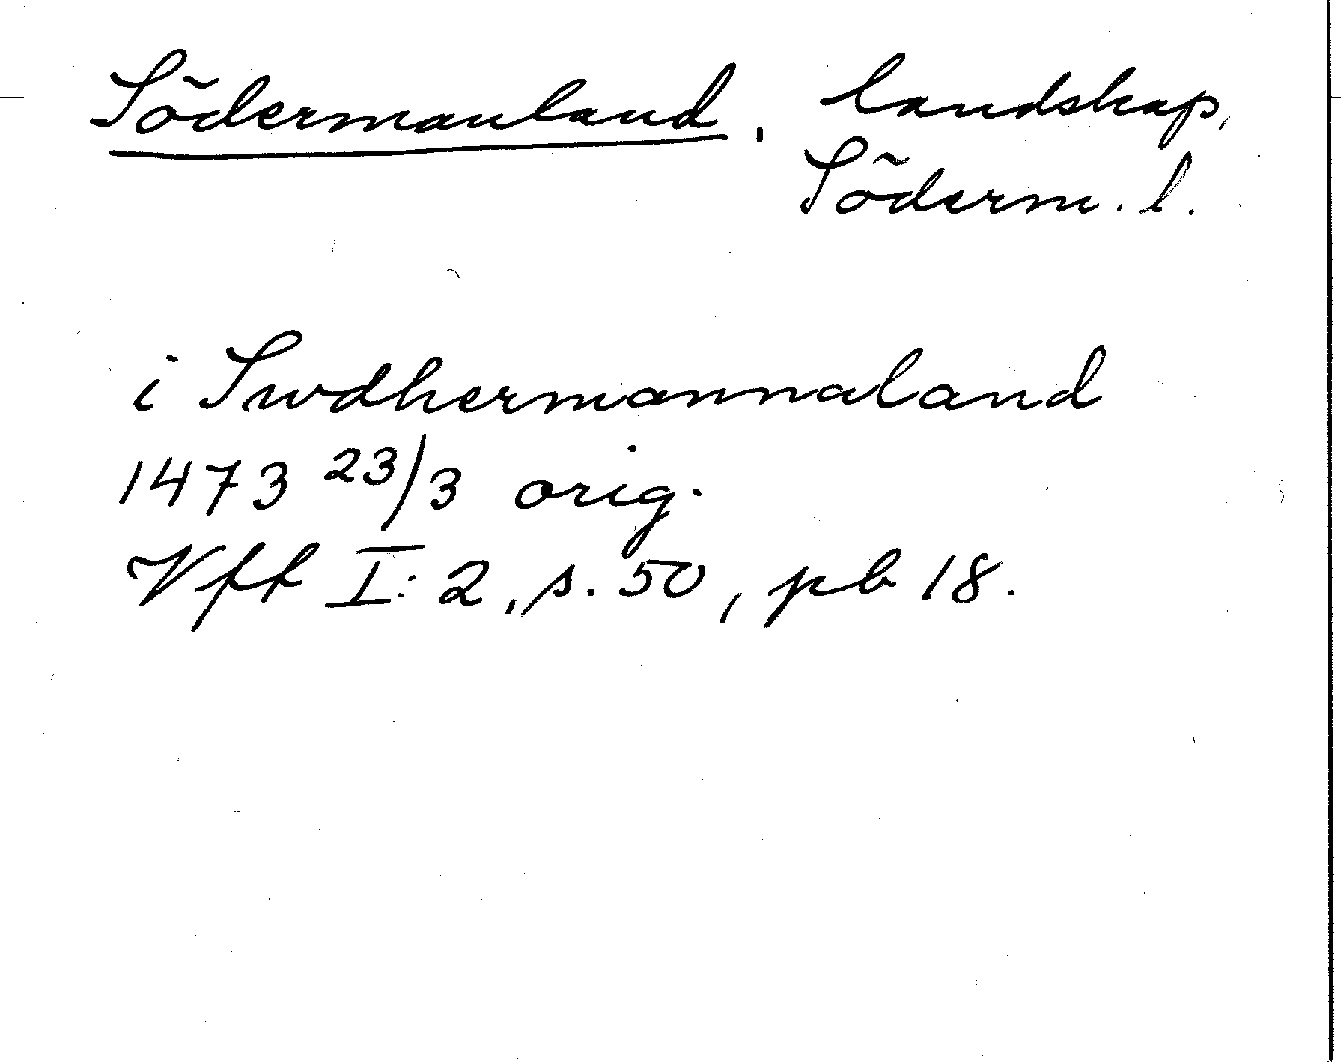 Södermanland, landskap,
Söderm. l.
i Swdhermannaland
1473 23/3 orig.
Vff I:2, s. 50, pb 18.